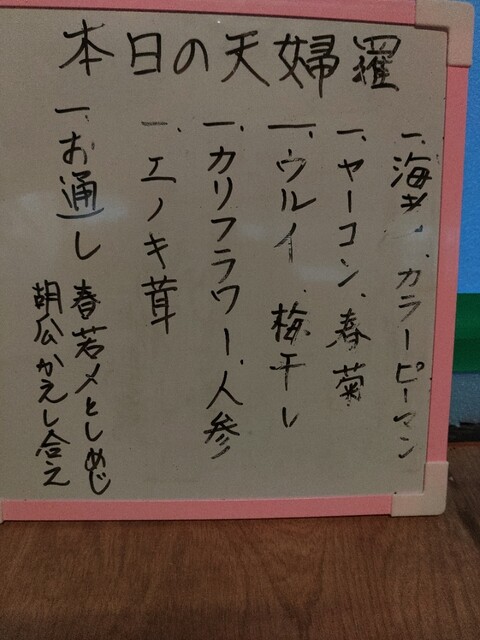 本日の天婦羅
一、海老、カラーピーマン
一、ヤーコン、春菊
一、ウルイ 梅干し
一、カリフラワー、人参
一、エノキ茸
一、お通し 春若メとしめじ
胡瓜かえし合え